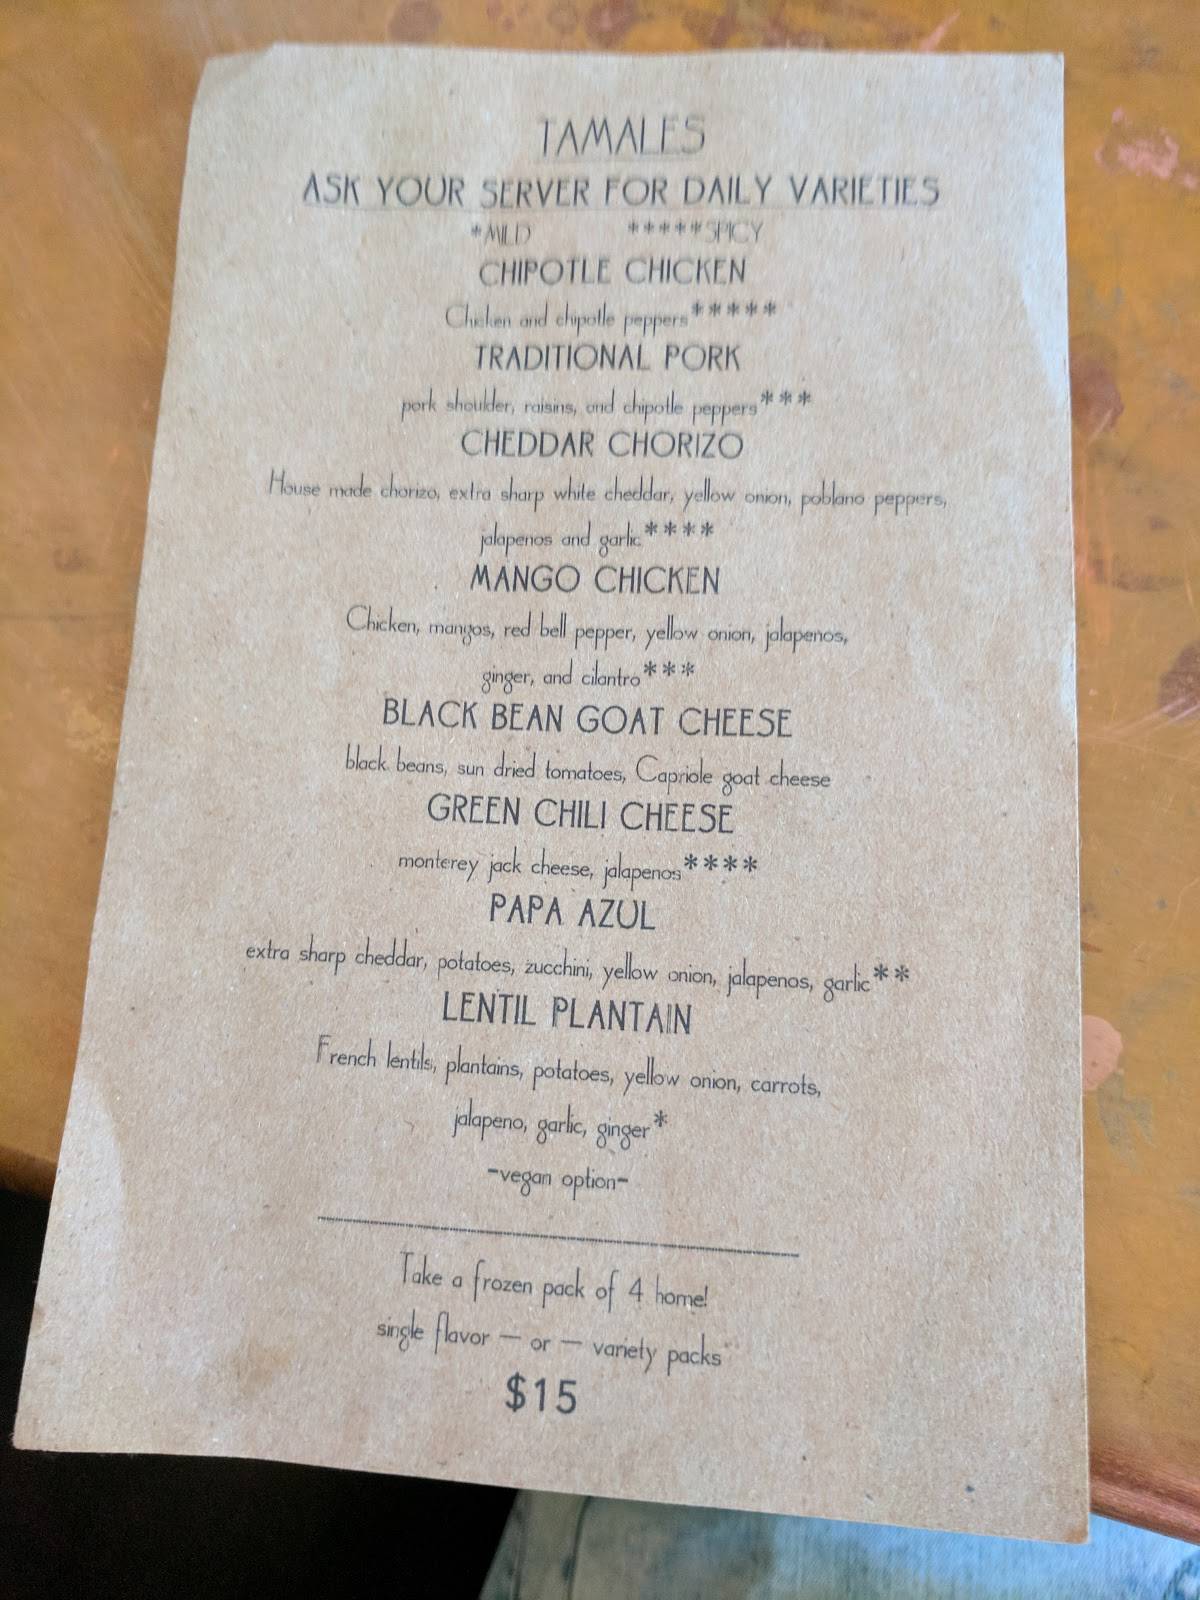 TAMALES
ASK YOUR SERVER FOR DAILY VARIETIES
*MILD *****SPICY
CHIPOTLE CHICKEN
Chicken and chipotle peppers*****
TRADITIONAL PORK
pork shoulder, raisins, and chipotle peppers***
CHEDDAR CHORIZO
House made chorizo, extra sharp white cheddar, yellow onion, poblano peppers,
jalapenos and garlic****
MANGO CHICKEN
Chicken, mangos, red bell pepper, yellow onion, jalapenos,
ginger, and cilantro***
BLACK BEAN GOAT CHEESE
black beans, sun dried tomatoes, Capriole goat cheese
GREEN CHILI CHEESE
monterey jack cheese, jalapenos****
PAPA AZUL
extra sharp cheddar, potatoes, zucchini, yellow onion, jalapenos, garlic**
LENTIL PLANTAIN
French lentils, plantains, potatoes, yellow onion, carrots,
jalapeno, garlic, ginger*
-vegan option-
Take a frozen pack of 4 home!
single flavor — or — variety packs
$15